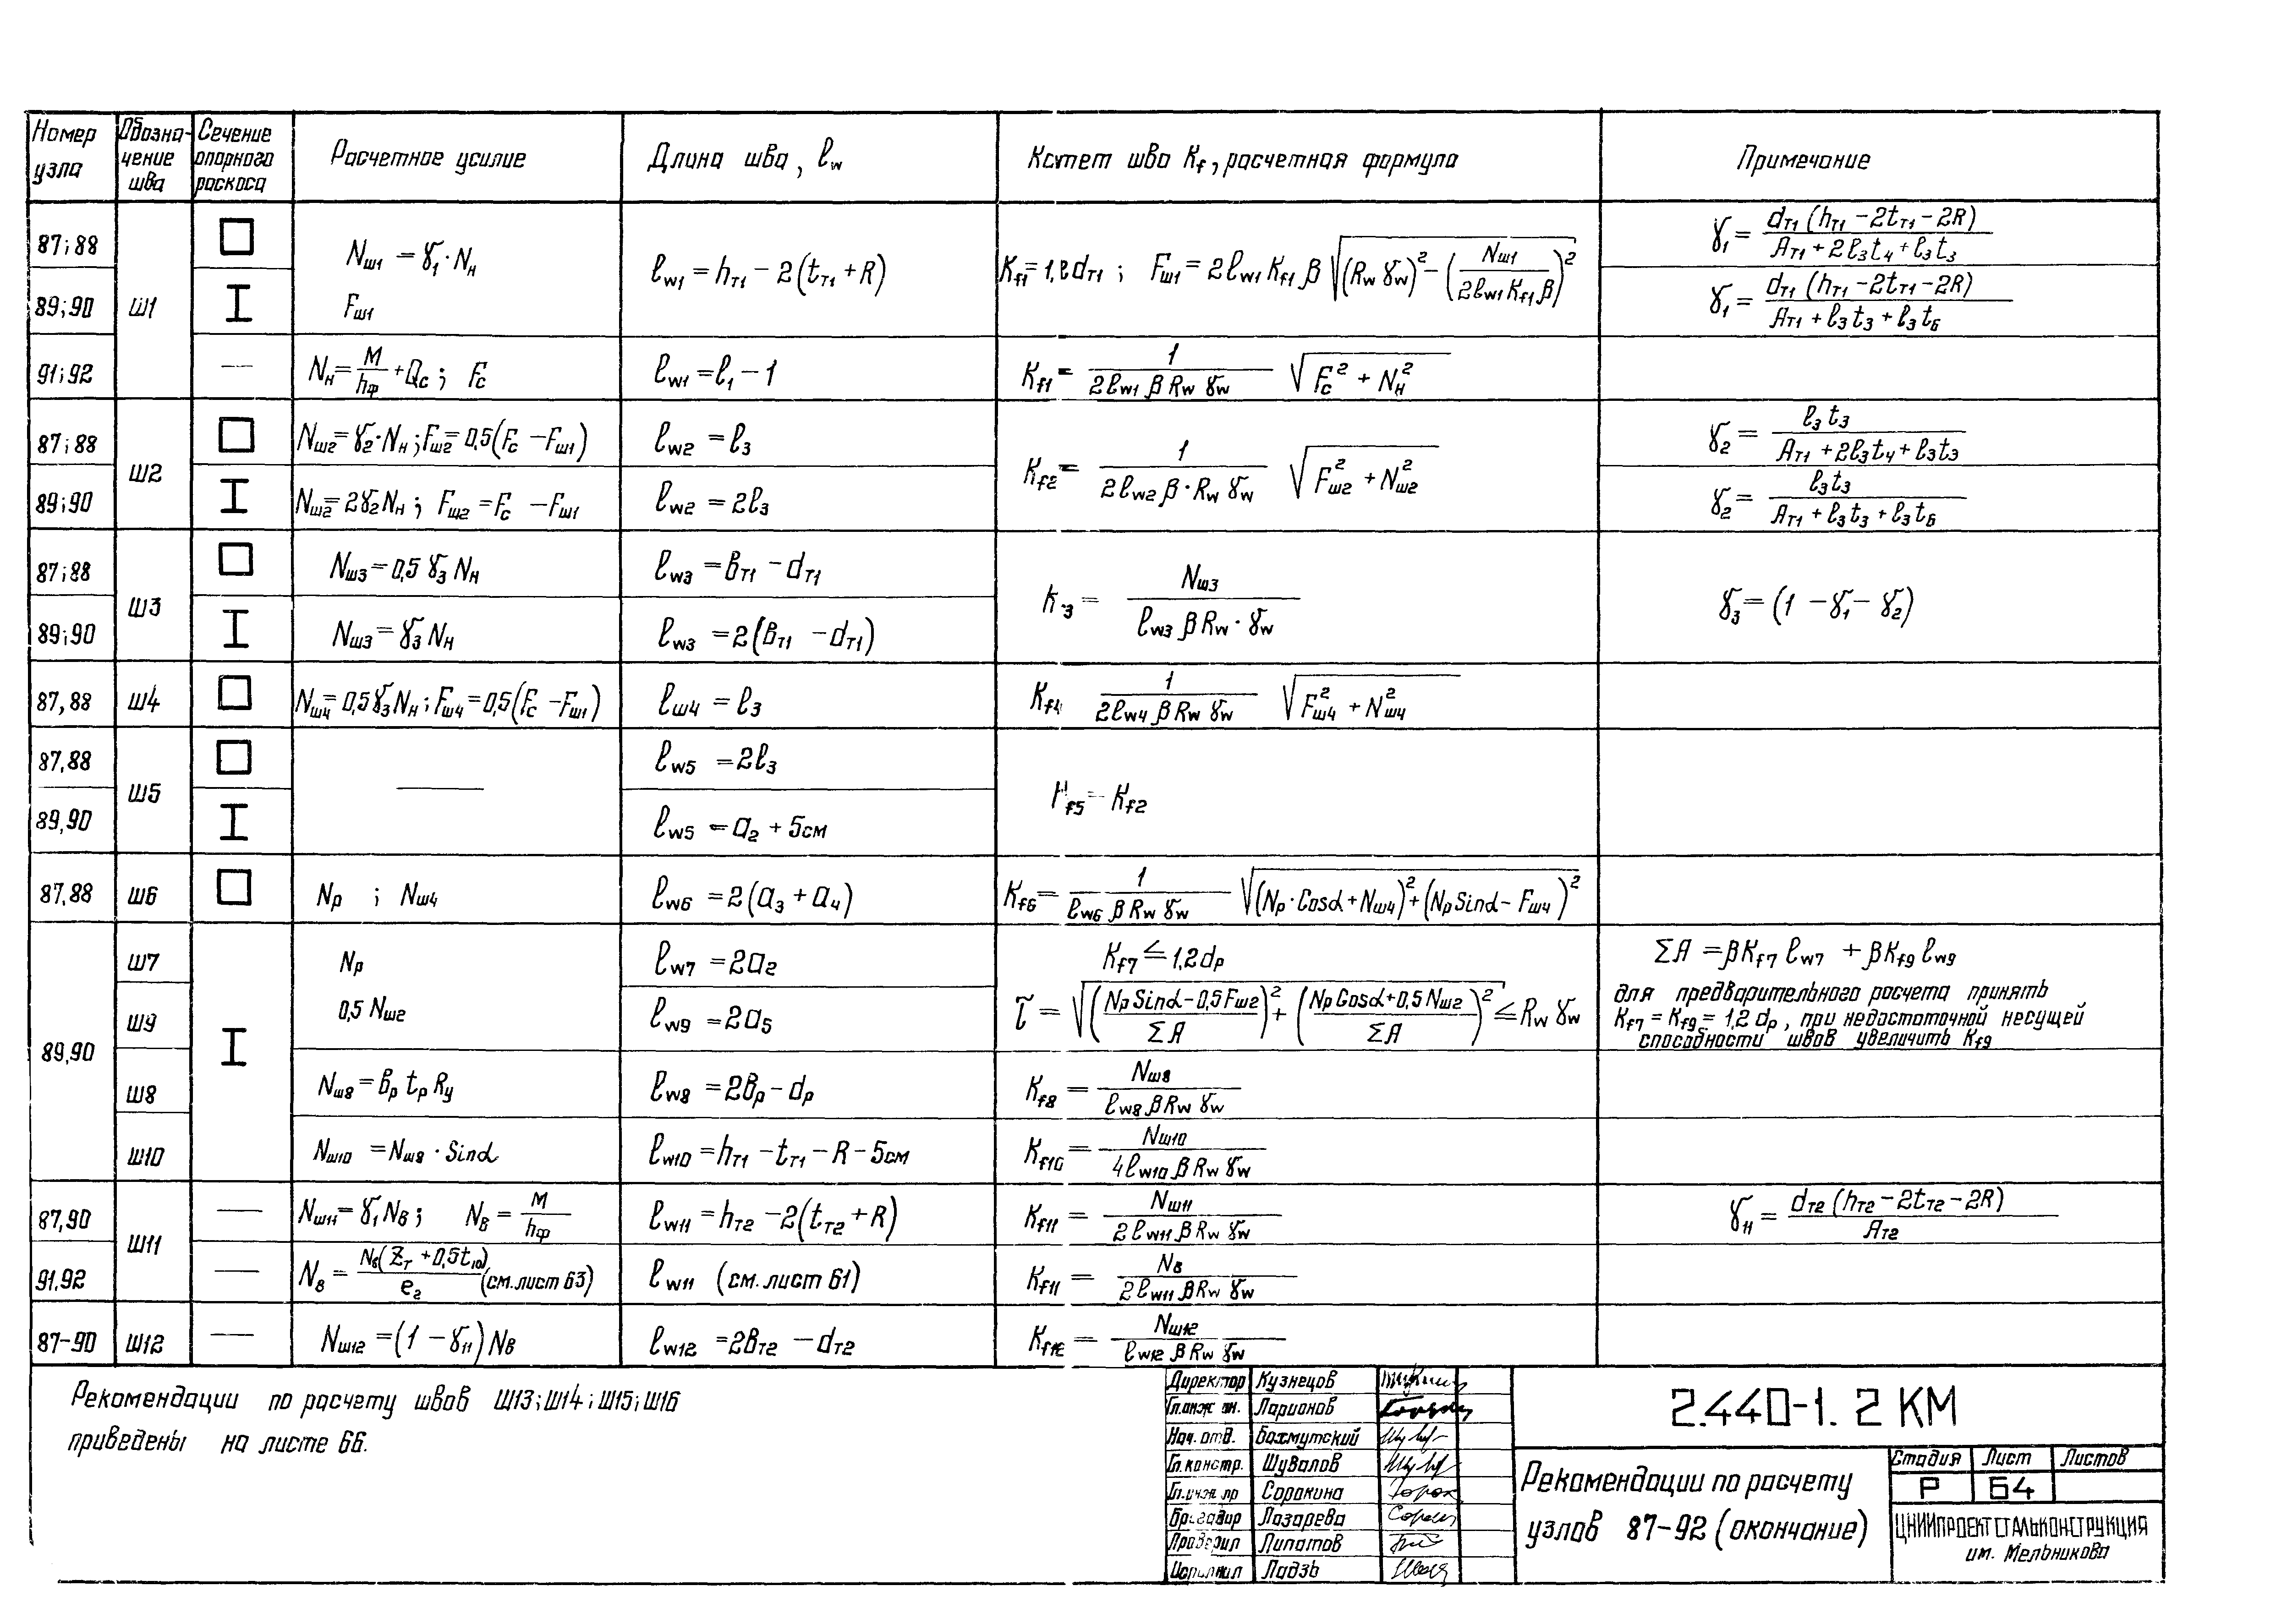 Номер узла | Обозна-чение шва | Сечение опорного раскоса | Расчетное усилие | Длина шва, ℓw | Катет шва Kf, расчетная формула | Примечание
87; 88 | Ш1 | □ | Nш1 = γ1·Nн | ℓw1 = hт1 − 2(tт1 + R) | Kf1 = 1,2dт1 ; Fш1 = 2ℓw1 Kf1 β √((Rw γw)² − (Nш1 / (2ℓw1 Kf1 β))²) | γ1 = dт1 (hт1 − 2tт1 − 2R) / (Aт1 + 2ℓ3t4 + ℓ3t3)
89; 90 | I | Fш1 | γ1 = dт1 (hт1 − 2tт1 − 2R) / (Aт1 + ℓ3t3 + ℓ3t6)
91; 92 | — | Nн = M/hф + Qc ; Fc | ℓw1 = ℓ1 − 1 | Kf1 = 1 / (2ℓw1 β Rw γw) √(Fc² + Nн²)
87; 88 | Ш2 | □ | Nш2 = γ2·Nн ; Fш2 = 0,5(Fc − Fш1) | ℓw2 = ℓ3 | Kf2 = 1 / (2ℓw2 β·Rw γw) √(Fш2² + Nш2²) | γ2 = ℓ3t3 / (Aт1 + 2ℓ3t4 + ℓ3t3)
89; 90 | I | Nш2 = 2γ2Nн ; Fш2 = Fc − Fш1 | ℓw2 = 2ℓ3 | γ2 = ℓ3t3 / (Aт1 + ℓ3t3 + ℓ3t6)
87; 88 | Ш3 | □ | Nш3 = 0,5 γ3 Nн | ℓw3 = вт1 − dт1 | K 3 = Nш3 / (ℓw3 β Rw·γw) | γ3 = (1 − γ1 − γ2)
89; 90 | I | Nш3 = γ3 Nн | ℓw3 = 2(вт1 − dт1)
87,88 | Ш4 | □ | Nш4 = 0,5γ3Nн ; Fш4 = 0,5(Fc − Fш1) | ℓш4 = ℓ3 | Kf4 1 / (2ℓw4 β Rw γw) √(Fш4² + Nш4²)
87,88 | Ш5 | □ | — | ℓw5 = 2ℓ3 | Kf5 = Kf2
89,90 | I | ℓw5 = a2 + 5см
87,88 | Ш6 | □ | Nр ; Nш4 | ℓw6 = 2(a3 + a4) | Kf6 = 1 / (ℓw6 β Rw γw) √((Nр·Cosα + Nш4)² + (Nр Sinα − Fш4)²)
89,90 | Ш7 | I | Nр | ℓw7 = 2a2 | Kf7 ≤ 1,2dр | ΣA = βKf7 ℓw7 + βKf9 ℓw9
Ш9 | 0,5 Nш2 | ℓw9 = 2a5 | τ = √(((Nр Sinα − 0,5Fш2) / ΣA)² + ((Nр Cosα + 0,5Nш2) / ΣA)²) ≤ Rw γw
для предварительного расчета принять
Kf7 = Kf9 = 1,2 dр, при недостаточной несущей
способности швов увеличить Kf9
Ш8 | Nш8 = вр tр Ry | ℓw8 = 2вр − dр | Kf8 = Nш8 / (ℓw8 β Rw γw)
Ш10 | Nш10 = Nш8 · Sinα | ℓw10 = hт1 − tт1 − R − 5см | Kf10 = Nш10 / (4ℓw10 β Rw γw)
87,90 | Ш11 | — | Nш11 = γ1 Nв ; Nв = M/hф | ℓw11 = hт2 − 2(tт2 + R) | Kf11 = Nш11 / (2ℓw11 β Rw γw) | γ11 = dт2 (hт2 − 2tт2 − 2R) / Aт2
91,92 | — | Nв = Nв(Zт + 0,5t10) / e2 (см. лист 63) | ℓw11 (см. лист 61) | Kf11 = Nв / (2ℓw11 β Rw γw)
87-90 | Ш12 | — | Nш12 = (1 − γ11) Nв | ℓw12 = 2вт2 − dт2 | Kf12 = Nш12 / (ℓw12 β Rw γw)
Рекомендации по расчету швов Ш13; Ш14; Ш15; Ш16
приведены на листе 66.
Директор Кузнецов
Гл.инж. ин. Ларионов
Нач. отд. Бахмутский
Гл. констр. Шувалов
Гл. инж. пр Сорокина
Бригадир Лазарева
Проверил Липатов
Исполнил Ладзь
2.440-1. 2 КМ
Рекомендации по расчету
узлов 87-92 (окончание)
Стадия Лист Листов
Р 64
ЦНИИПРОЕКТСТАЛЬКОНСТРУКЦИЯ
им. Мельникова